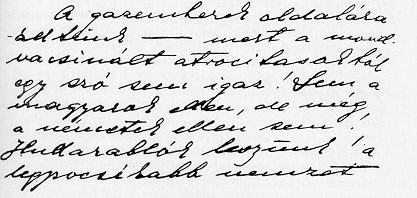 A gazemberek oldalára
álltunk — mert a mond-
vacsinált atrocitásokból
egy szó sem igaz! Sem a
magyarok ellen, de még
a németek ellen sem!
Hullarablók lettünk! a
legpocsékabb nemzet